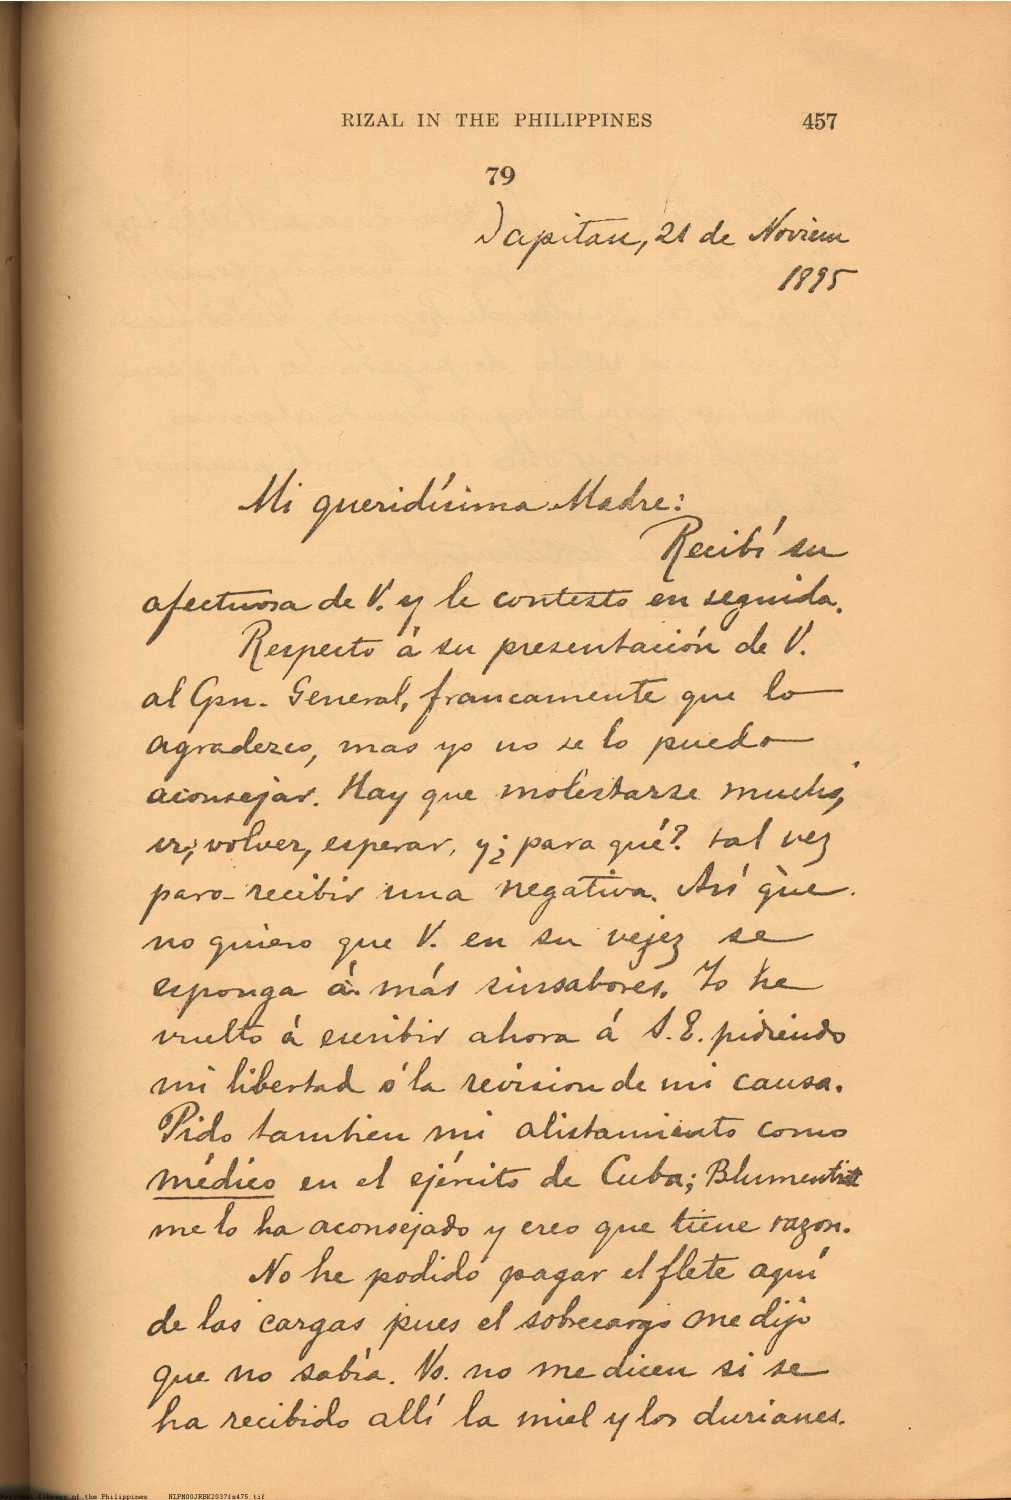 RIZAL IN THE PHILIPPINES 457
79
Dapitan, 21 de Noviem
1895
Mi queridísima Madre:
Recibí su
afectuosa de V. y le contesto en seguida.
Respecto á su presentación de V.
al Gen. General, francamente que lo
agradezco, mas yo no se lo puedo
aconsejar. Hay que molestarse mucho,
ir, volver, esperar, y ¿para qué? tal vez
para recibir una negativa. Así que
no quiero que V. en su vejez se
esponga á más sinsabores. Yo he
vuelto á escribir ahora á S.E. pidiendo
mi libertad ó la revision de mi causa.
Pido tambien mi alistamiento como
médico en el ejército de Cuba; Blumentritt
me lo ha aconsejado y creo que tiene razon.
No he podido pagar el flete aquí
de las cargas pues el sobrecargo me dijo
que no sabía. Vs. no me dicen si se
ha recibido allí la miel y los durianes.
National Library of the Philippines NLPM00JRBK2037fs475.tif